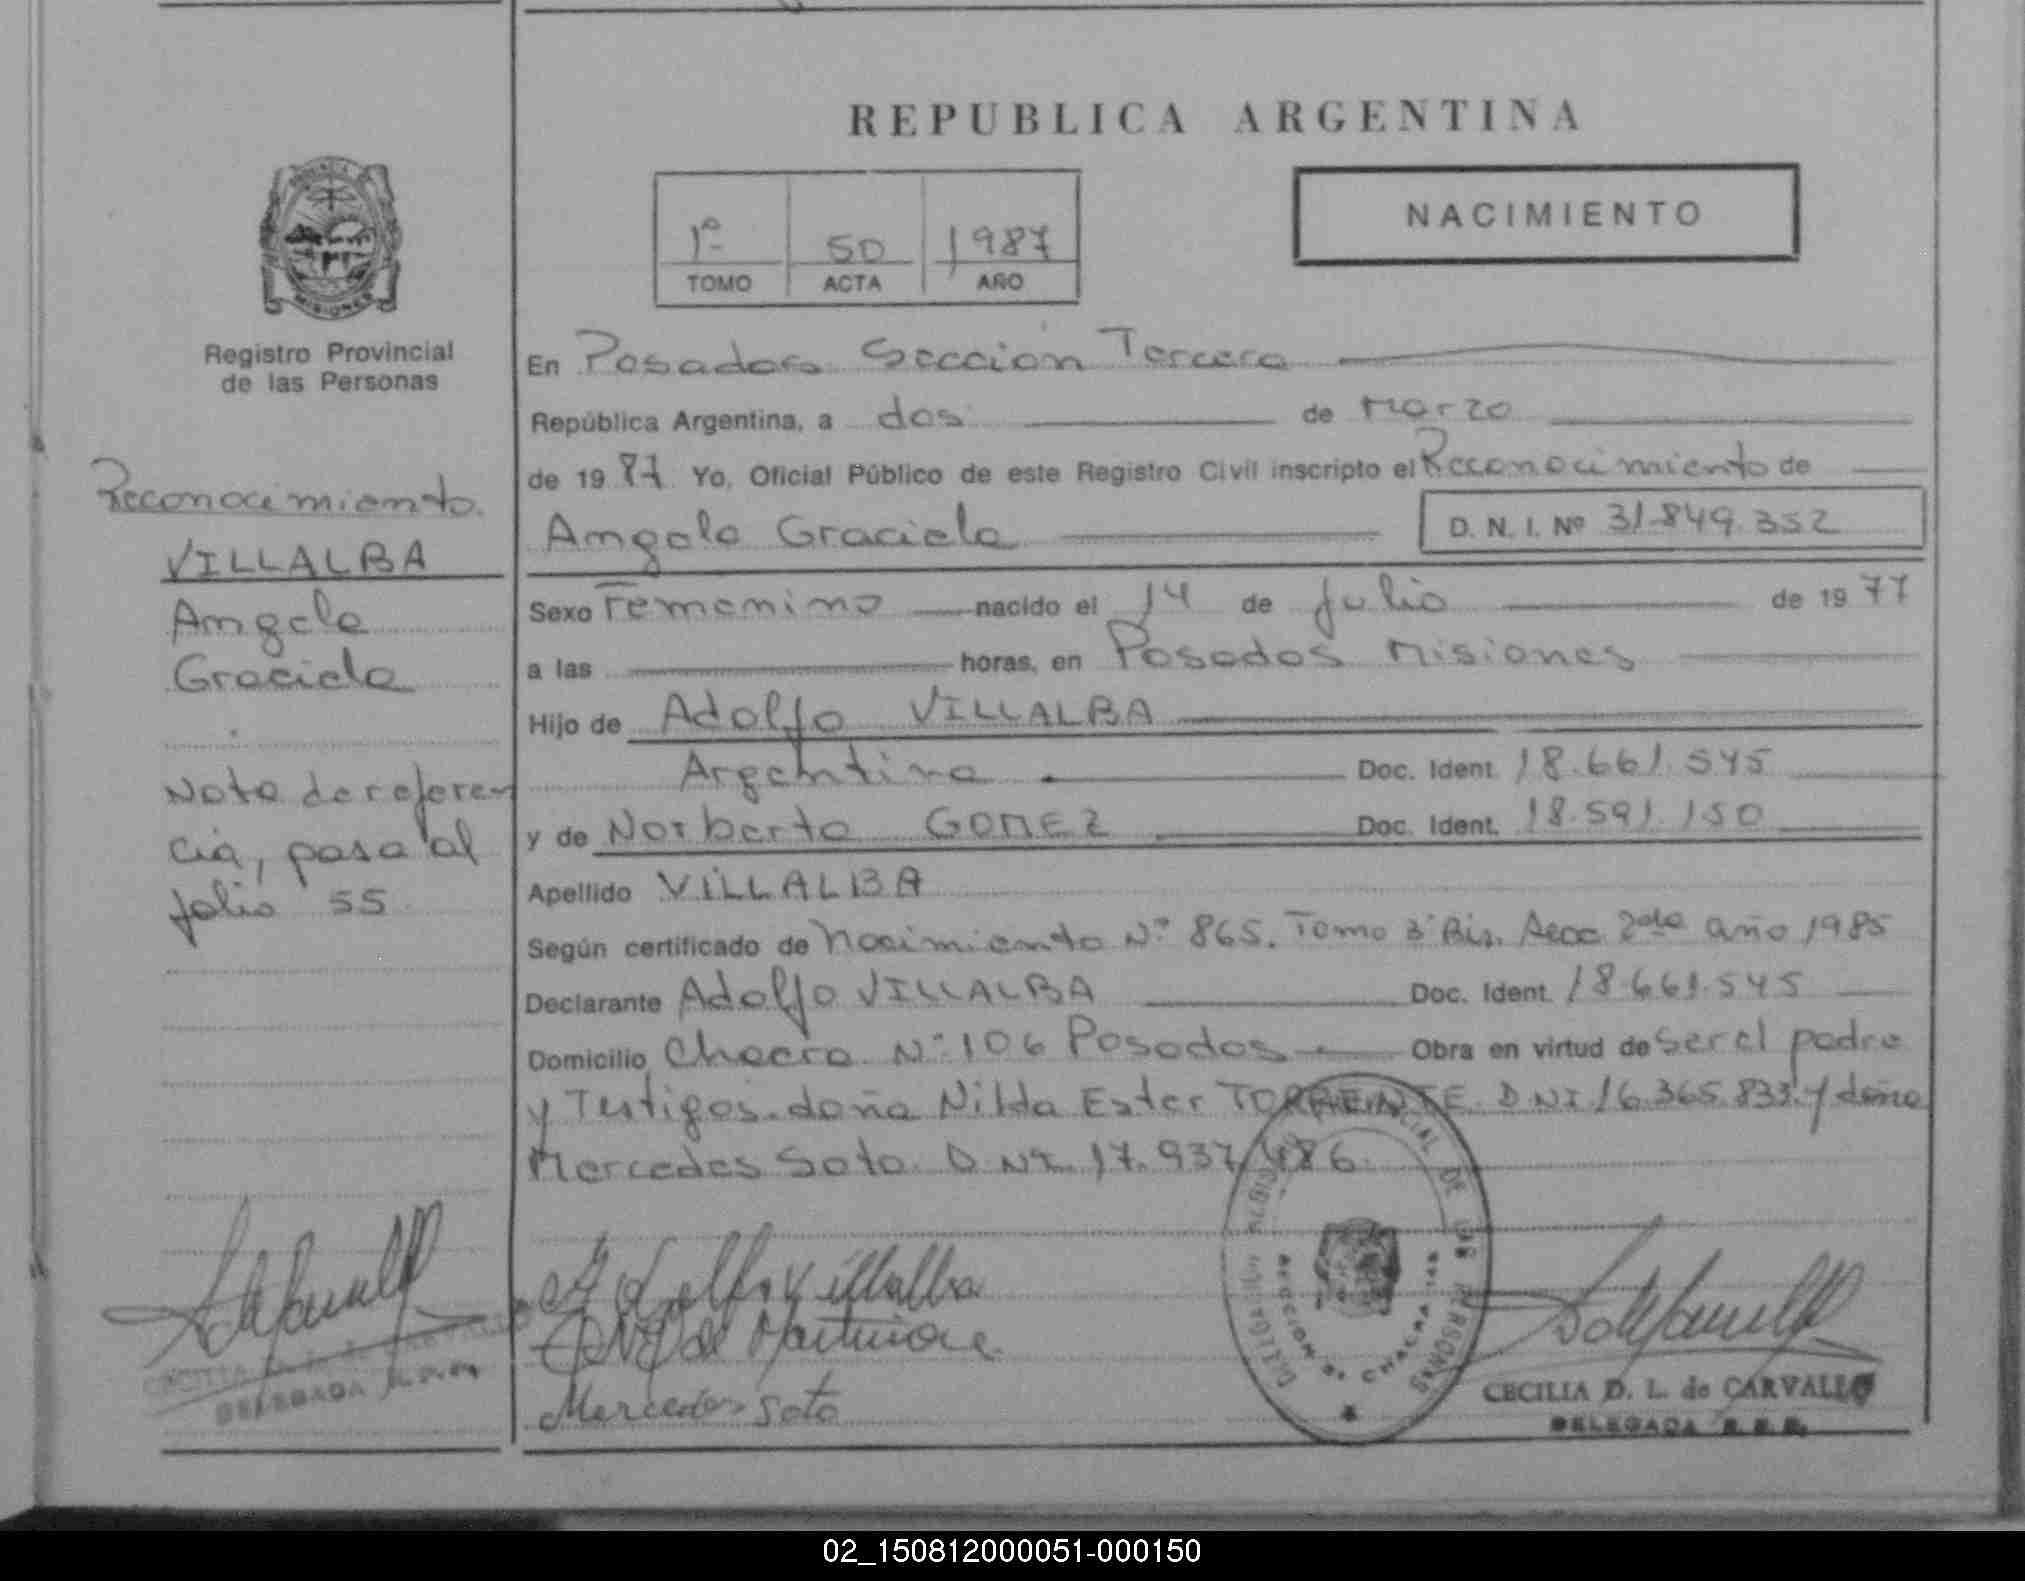 REPUBLICA ARGENTINA
NACIMIENTO
1º 50 1987
TOMO ACTA AÑO
PROVINCIA
MISIONES
Registro Provincial
de las Personas
Reconocimiento
VILLALBA
Angela
Graciela
Nota de referen
cia, pasa al
folio 55
En Posadas Sección Tercera
República Argentina, a dos de Marzo
de 1987 Yo, Oficial Público de este Registro Civil inscripto el Reconocimiento de
Angela Graciela D. N. I. Nº 31.849.352
Sexo Femenino nacido el 14 de Julio de 1977
a las horas, en Posadas Misiones
Hijo de Adolfo VILLALBA
Argentina Doc. Ident. 18.661.545
y de Norberta GOMEZ Doc. Ident. 18.591.150
Apellido VILLALBA
Según certificado de Nacimiento Nº 865. Tomo 3º Bis. Secc 2da año 1985
Declarante Adolfo VILLALBA Doc. Ident. 18.661.545
Domicilio Chacra Nº 106 Posadas Obra en virtud de ser el padre
y Testigos. doña Nilda Ester TORRENTE D.NI 16.365.833 y doña
Mercedes Soto. D.NI. 17.937.486.
Adolfo Villalba
Mercedes Soto
REGISTRO PROVINCIAL DE LAS PERSONAS
SECCION 3º CHACRA 145
CECILIA D. L. de CARVALLO
DELEGADA R.P.P.
DELEGADA
02_150812000051-000150